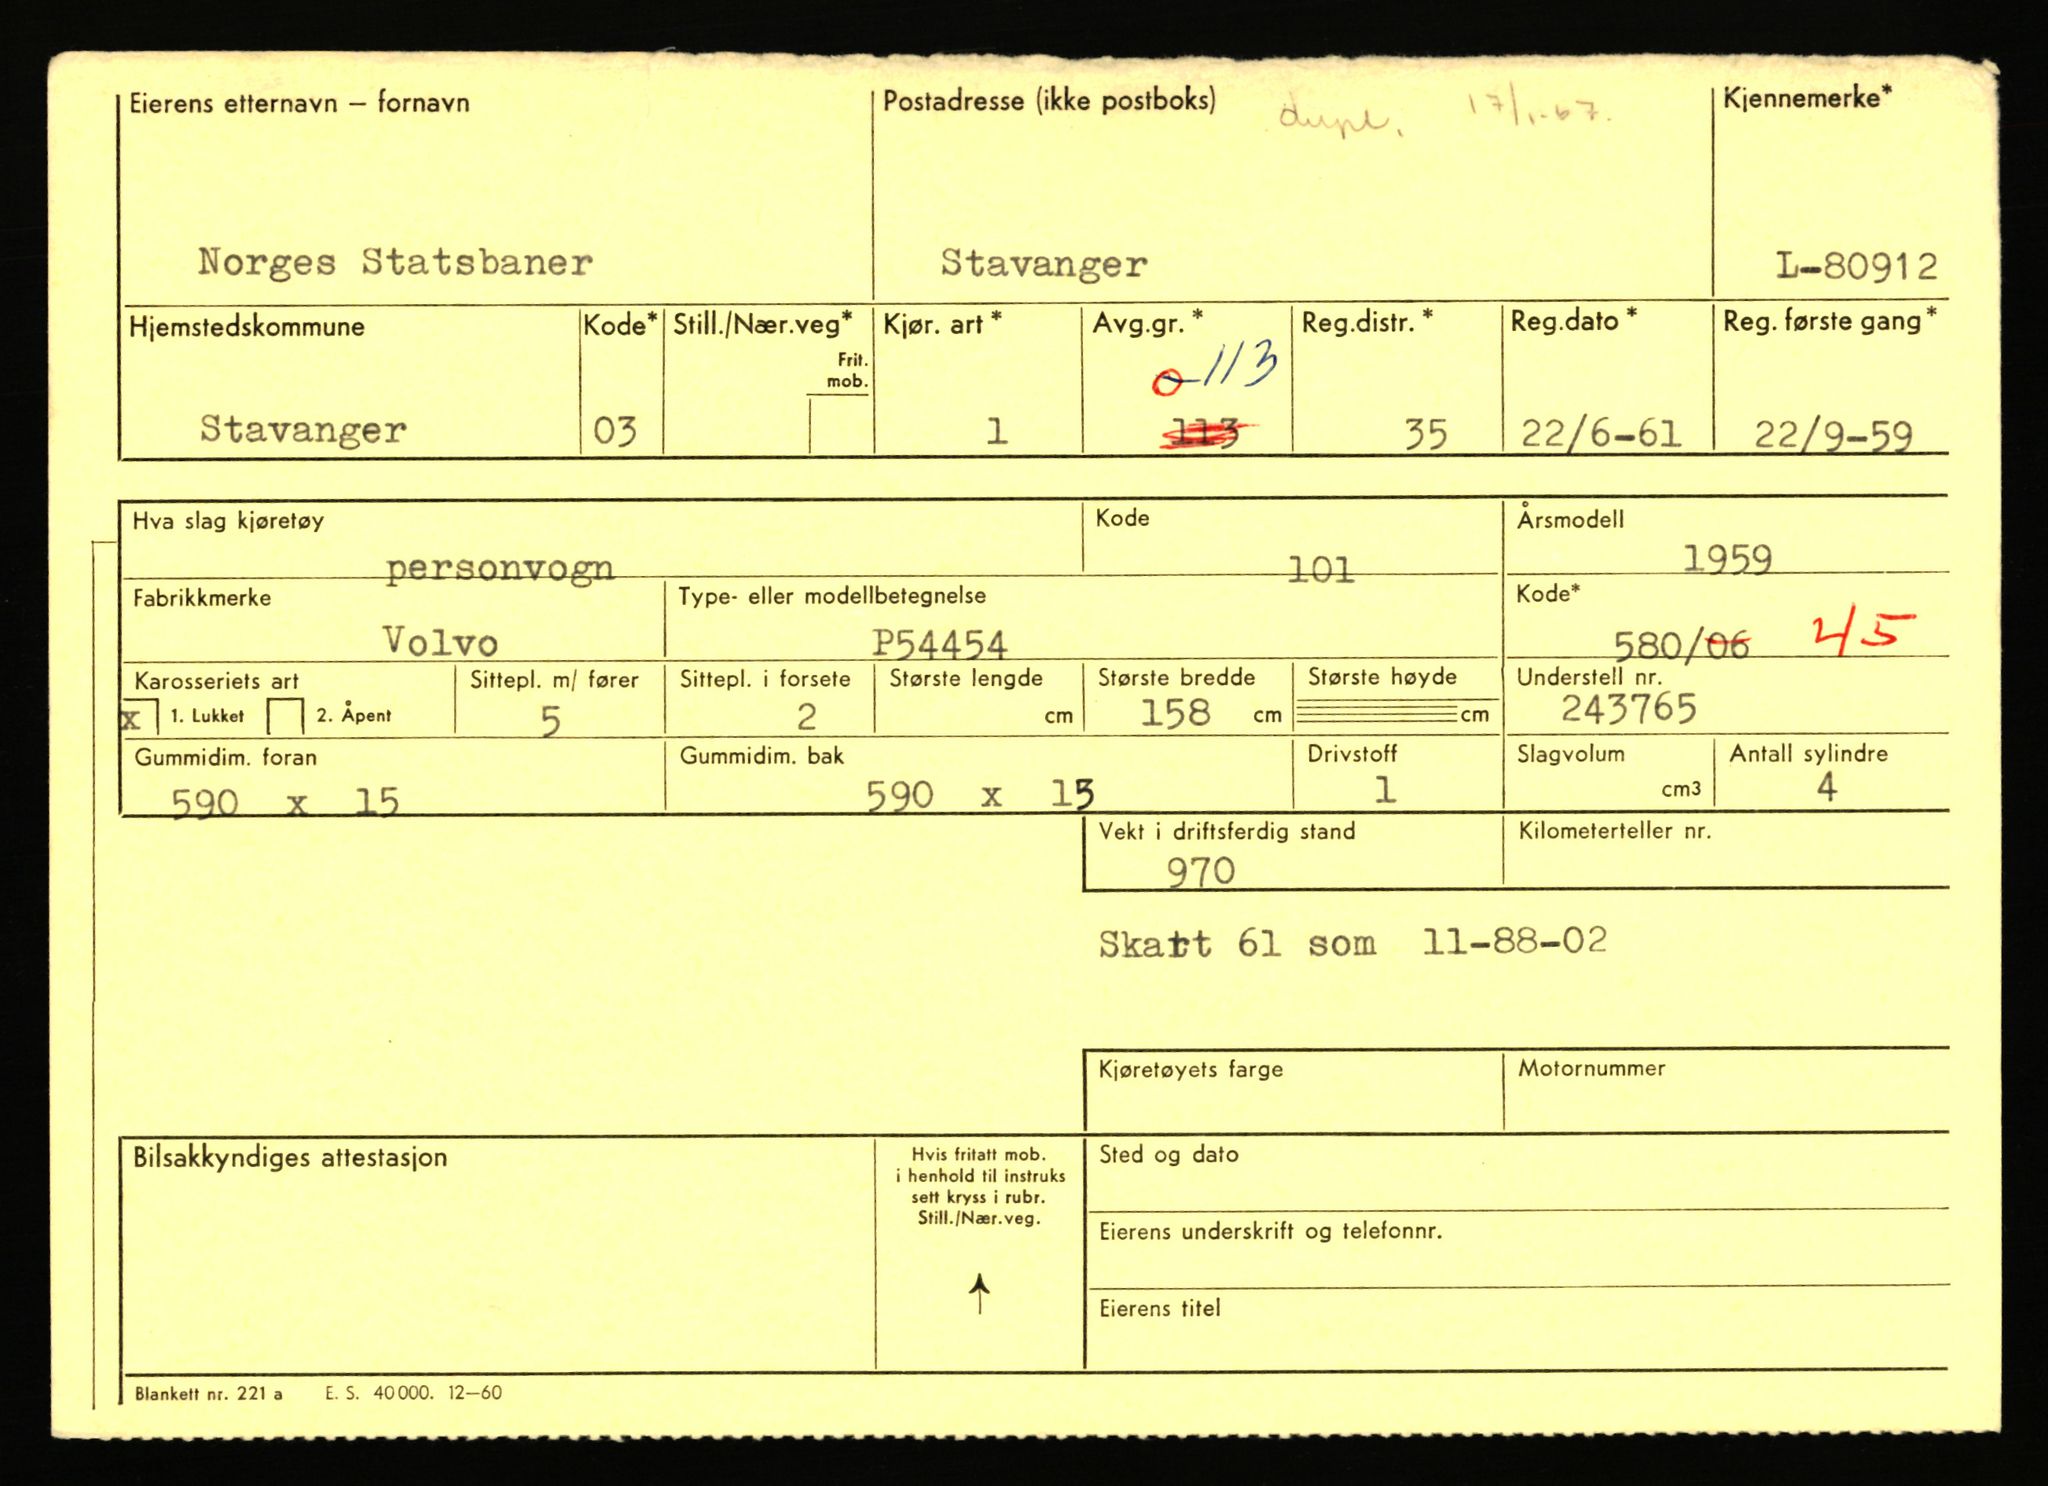 Eierens etternavn – fornavn
Postadresse (ikke postboks)
dupl. 17/1-67.
Kjennemerke*
Norges Statsbaner
Stavanger
L-80912
Hjemstedskommune
Kode*
Still./Nær.veg*
Frit. mob.
Kjør. art *
Avg.gr. *
Reg.distr. *
Reg.dato *
Reg. første gang *
0 113
Stavanger
03
1
113
35
22/6-61
22/9-59
Hva slag kjøretøy
Kode
Årsmodell
personvogn
101
1959
Fabrikkmerke
Type- eller modellbetegnelse
Kode*
Volvo
P54454
580/06 45
Karosseriets art
Sittepl. m/ fører
Sittepl. i forsete
Største lengde
Største bredde
Største høyde
Understell nr.
x 1. Lukket 2. Åpent
5
2
cm
158 cm
cm
243765
Gummidim. foran
Gummidim. bak
Drivstoff
Slagvolum
Antall sylindre
590 x 15
590 x 15
1
cm3
4
Vekt i driftsferdig stand
Kilometerteller nr.
970
Skatt 61 som 11-88-02
Kjøretøyets farge
Motornummer
Bilsakkyndiges attestasjon
Hvis fritatt mob.
i henhold til instruks
sett kryss i rubr.
Still./Nær.veg.
Sted og dato
Eierens underskrift og telefonnr.
Eierens titel
Blankett nr. 221 a E. S. 40 000. 12–60